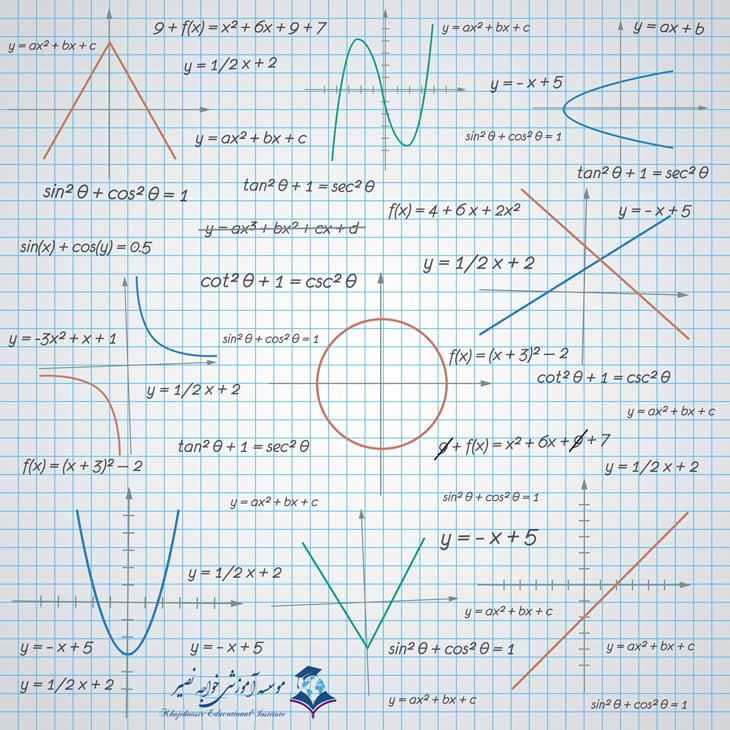 9 + f(x) = x² + 6x + 9 + 7
y = ax² + bx + c
y = ax + b
y = ax² + bx + c
y = 1/2 x + 2
y = - x + 5
y = ax² + bx + c
sin² θ + cos² θ = 1
tan² θ + 1 = sec² θ
sin² θ + cos² θ = 1
tan² θ + 1 = sec² θ
f(x) = 4 + 6 x + 2x²
y = - x + 5
y = ax³ + bx² + cx + d
sin(x) + cos(y) = 0.5
y = 1/2 x + 2
cot² θ + 1 = csc² θ
y = -3x² + x + 1
sin² θ + cos² θ = 1
f(x) = (x + 3)² - 2
cot² θ + 1 = csc² θ
y = 1/2 x + 2
y = ax² + bx + c
tan² θ + 1 = sec² θ
9 + f(x) = x² + 6x + 9 + 7
f(x) = (x + 3)² - 2
y = 1/2 x + 2
y = ax² + bx + c
sin² θ + cos² θ = 1
y = - x + 5
y = 1/2 x + 2
y = ax² + bx + c
y = - x + 5
y = - x + 5
sin² θ + cos² θ = 1
y = ax² + bx + c
y = 1/2 x + 2
موسسه آموزشی خواجه نصیر
Khajehnasir Educational Institute
y = ax² + bx + c
sin² θ + cos² θ = 1